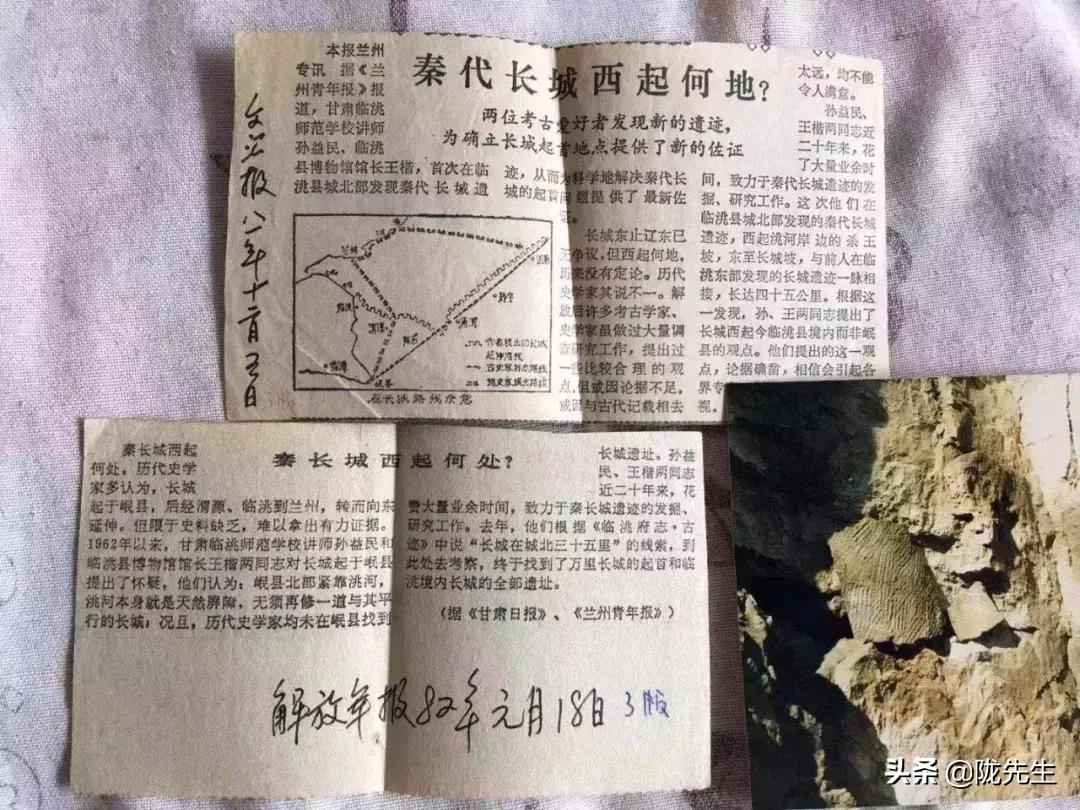 秦代长城西起何地？
两位考古爱好者发现新的遗迹，
为确立长城起首地点提供了新的佐证
本报兰州
专讯 据《兰
州青年报》报
道，甘肃临洮
师范学校讲师
孙益民、临洮
县博物馆馆长王楷，首次在临
洮县城北部发现秦代长城遗
迹，从而为科学地解决秦代长
城的起首问题提供了最新佐
证。
长城东止辽东已
无争议，但西起何地，
历来没有定论。历代
史学家其说不一。解
放后许多考古学家、
史学家虽做过大量调
查研究工作，提出过
一些比较合理的观
点，但或因论据不足，
或因与古代记载相去
太远，均不能
令人满意。
孙益民、
王楷两同志近
二十年来，花
了大量业余时
间，致力于秦代长城遗迹的发
掘、研究工作。这次他们在
临洮县城北部发现的秦代长城
遗迹，西起洮河岸边的杀王
坡，东至长城坡，与前人在临
洮东部发现的长城遗迹一脉相
接，长达四十五公里。根据这
一发现，孙、王两同志提出了
长城西起今临洮县境内而非岷
县的观点。他们提出的这一观
点，论据确凿，相信会引起各
界专
视。
兰州
临洮
渭源
陇西
静宁
临潭
岷县
作者提出的长城
延伸线
文汇报八一年十二月五日
秦长城西起何处？
秦长城西起
何处，历代史学
家多认为，长城
起于岷县，后经渭源、临洮到兰州，转而向东
延伸。但限于史料缺乏，难以拿出有力证据。
1962年以来，甘肃临洮师范学校讲师孙益民和
临洮县博物馆馆长王楷两同志对长城起于岷县
提出了怀疑，他们认为：岷县北部紧靠洮河，
洮河本身就是天然屏障，无须再修一道与其平
行的长城；况且，历代史学家均未在岷县找到
长城遗址。孙益
民、王楷两同志
近二十年来，花
费大量业余时间，致力于秦长城遗迹的发掘、
研究工作。去年，他们根据《临洮府志·古
迹》中说“长城在城北三十五里”的线索，到
此处去考察，终于找到了万里长城的起首和临
洮境内长城的全部遗址。
（据《甘肃日报》、《兰州青年报》）
解放军报82年元月18日 3版
头条 @陇先生